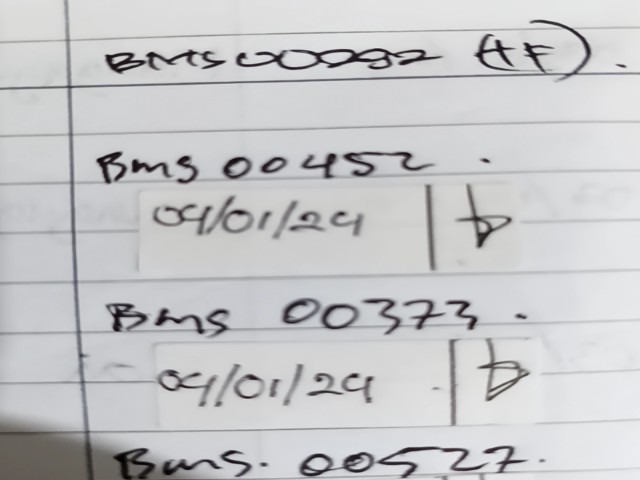 BMS00292 (HF).
Bms 00452.
04/01/24
Bms 00373.
04/01/24
Bms. 00527.